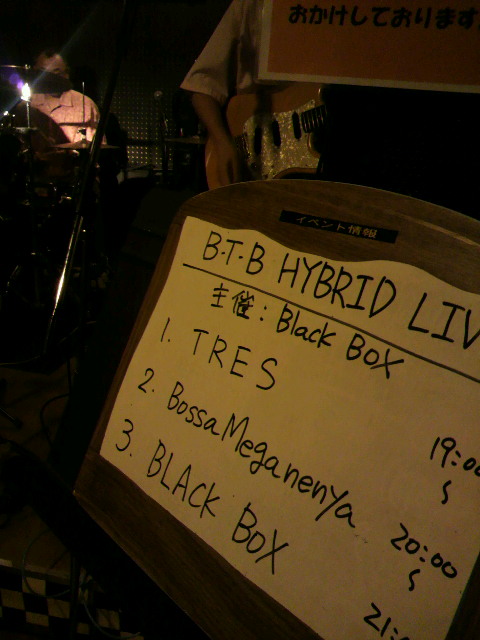 おかけしております
イベント情報
B・T・B HYBRID LIV
主催：Black BoX
1. TRES
19:00
〜
2. BossaMeganenya
20:00
〜
3. BLACK BoX
21: